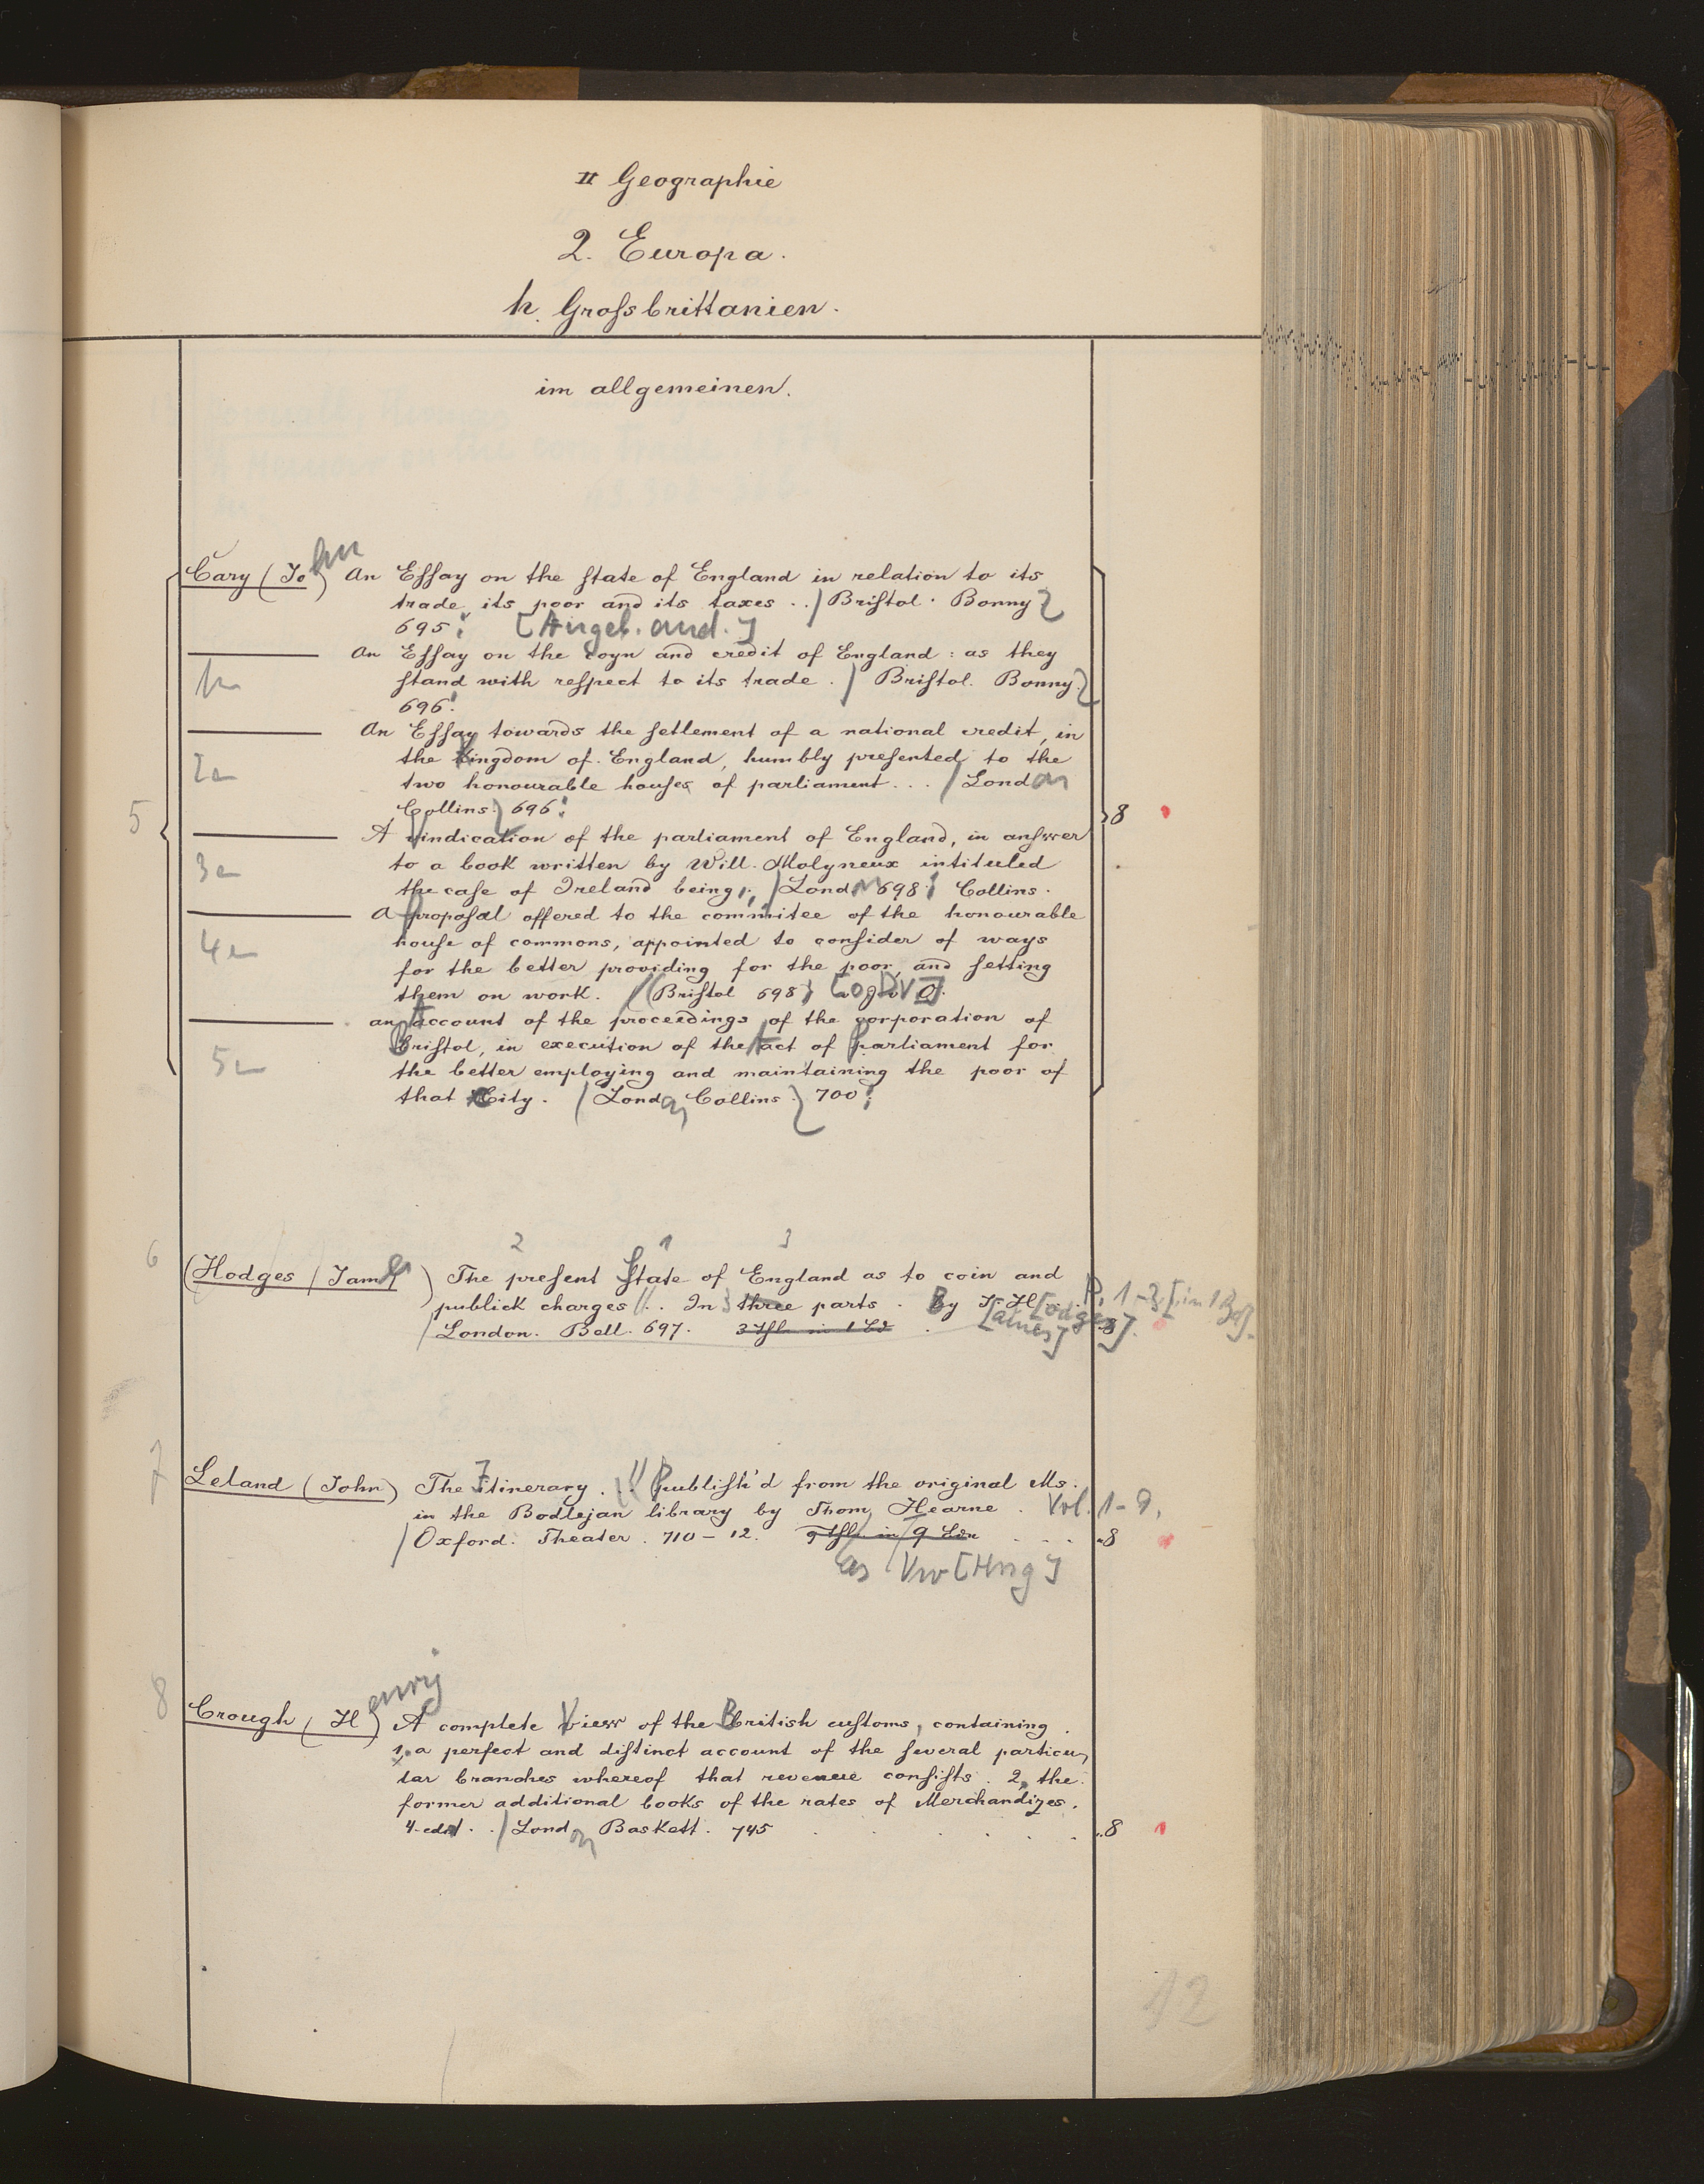 II Geographie
2. Europa.
h. Großbrittanien.
im allgemeinen.
5
Cary (John) An Eſſay on the ſtate of England in relation to its
trade, its poor and its taxes . . / Briſtol. Bonny
695. [Angeb. and.]
An Eſſay on the coyn and credit of England : as they
ſtand with reſpect to its trade. / Briſtol. Bonny.
696.
1
An Eſſay towards the ſetlement of a national credit, in
the Kingdom of England, humbly preſented to the
two honourable houſes of parliament . . . / London
Collins. 696.
2
8
A vindication of the parliament of England, in anſwer
to a book written by Will. Molyneux intituled
the caſe of Ireland being . / Lond 698. Collins.
3
A propoſal offered to the commitee of the honourable
houſe of commons, appointed to conſider of ways
for the better providing for the poor, and ſetting
them on work. / (Briſtol 698)
4
an Account of the proceedings of the corporation of
Briſtol, in execution of the Act of Parliament for
the better employing and maintaining the poor of
that City. / London Collins 700.
5
2 1 3
6
(Hodges (James) The preſent State of England as to coin and
publick charges . . In 3 three parts. By J. H[odges]. P. 1-3 [in 1 Bd].
/ London. Bell. 697. 3 Thle in 1 Bd . [ames] 8
7
Leland (John) The Itinerary . // Publiſh'd from the original Ms.
in the Bodlejan library by Thom. Hearne . Vol. 1-9.
/ Oxford. Theater. 710-12. 9 Thle in 9 Bdn . . . 8
[Hrsg]
8
Crough (Henry) A complete View of the British cuſtoms, containing
1, a perfect and diſtinct account of the ſeveral particu-
lar branches whereof that revenue conſiſts. 2, the
former additional books of the rates of Merchandizes.
4. edit. . / London Baskett. 745 . . . . . . 8
12